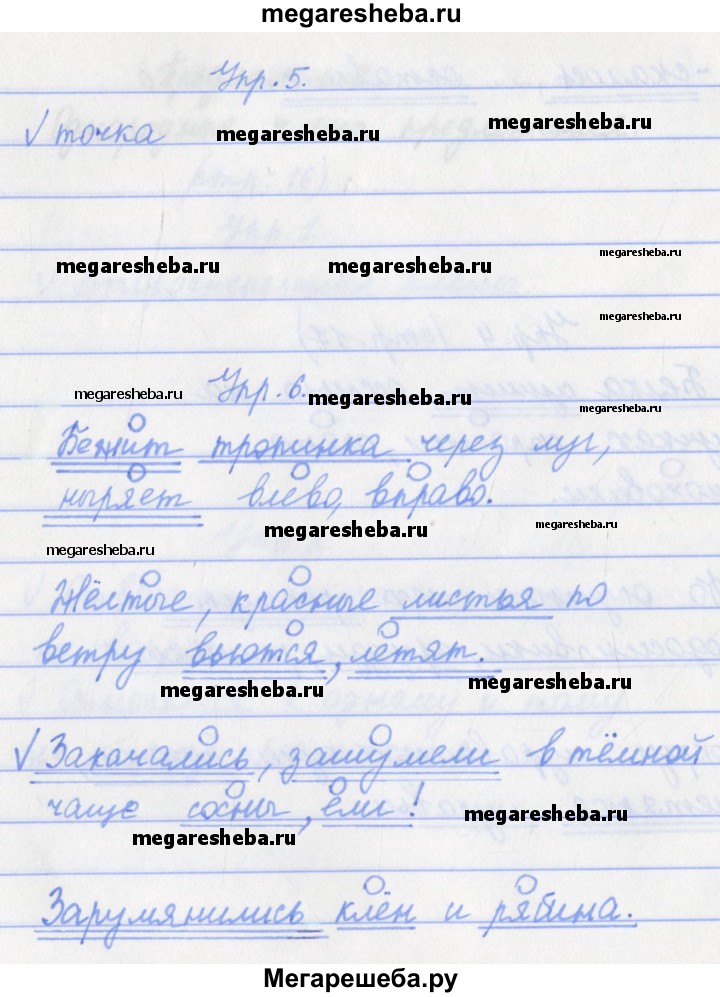 megaresheba.ru
Упр. 5.
√ точка megaresheba.ru megaresheba.ru
megaresheba.ru megaresheba.ru megaresheba.ru
megaresheba.ru
Упр. 6.
megaresheba.ru megaresheba.ru megaresheba.ru
Бежит тропинка через луг,
ныряет влево, вправо.
megaresheba.ru megaresheba.ru megaresheba.ru
Жёлтые, красные листья по
ветру вьются, летят.
megaresheba.ru megaresheba.ru
√ Закачались, зашумели в тёмной
чаще сосны, ели!
megaresheba.ru megaresheba.ru
Зарумянились клён и рябина.
Мегарешеба.ру